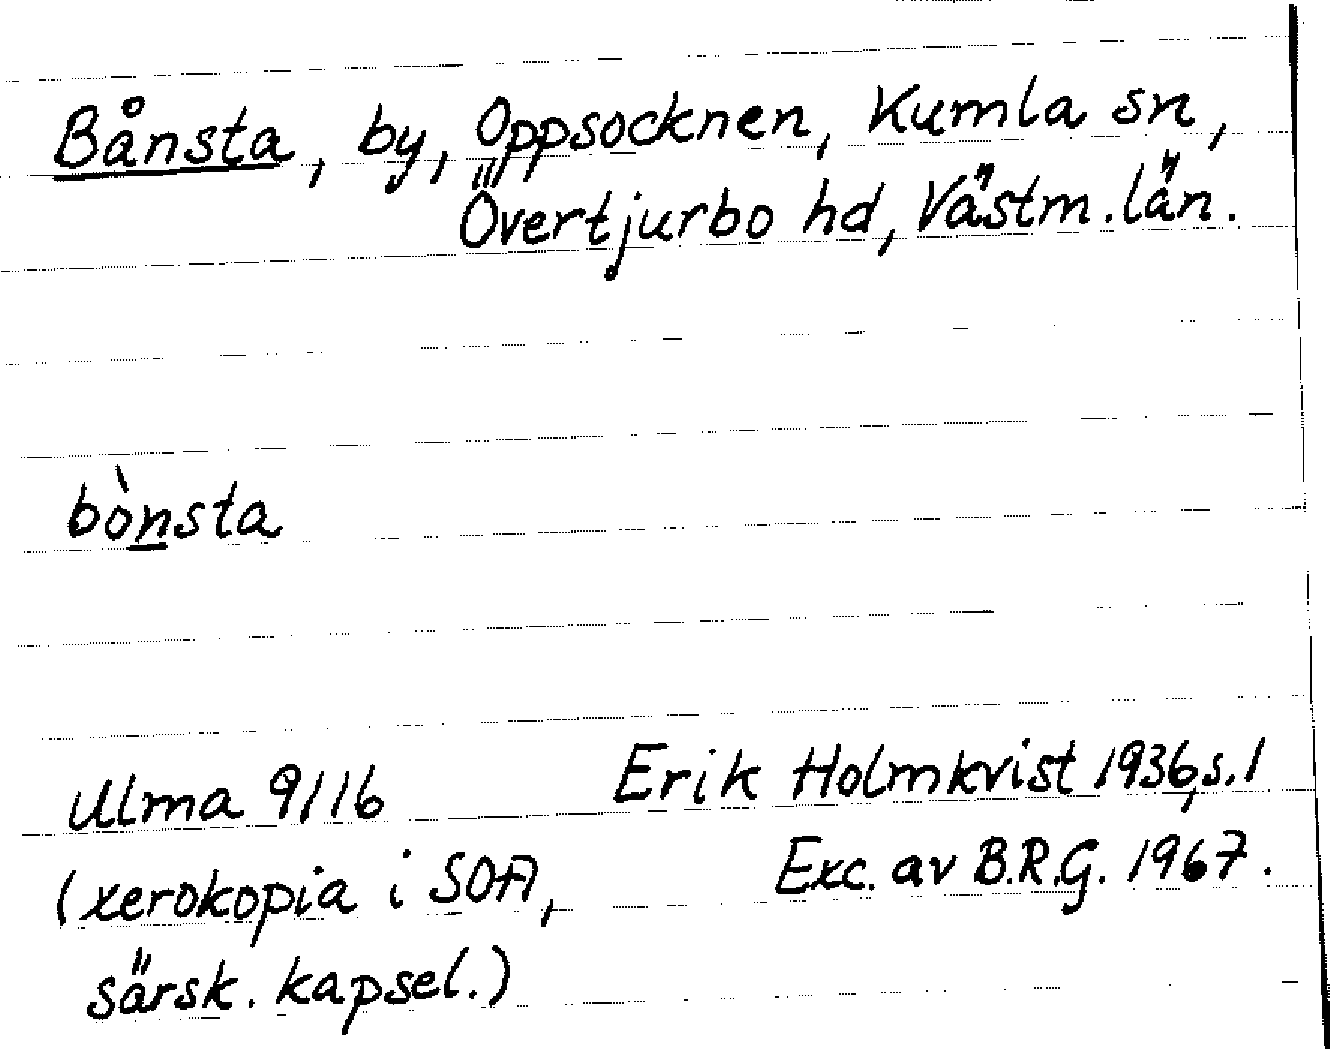 Bånsta, by, Oppsocknen, Kumla sn,
Övertjurbo hd, Västm. län.
bònsta
Ulma 9116 Erik Holmkvist 1936, s. 1
(xerokopia i SOA, Exc. av B.R.G. 1967.
särsk. kapsel.)